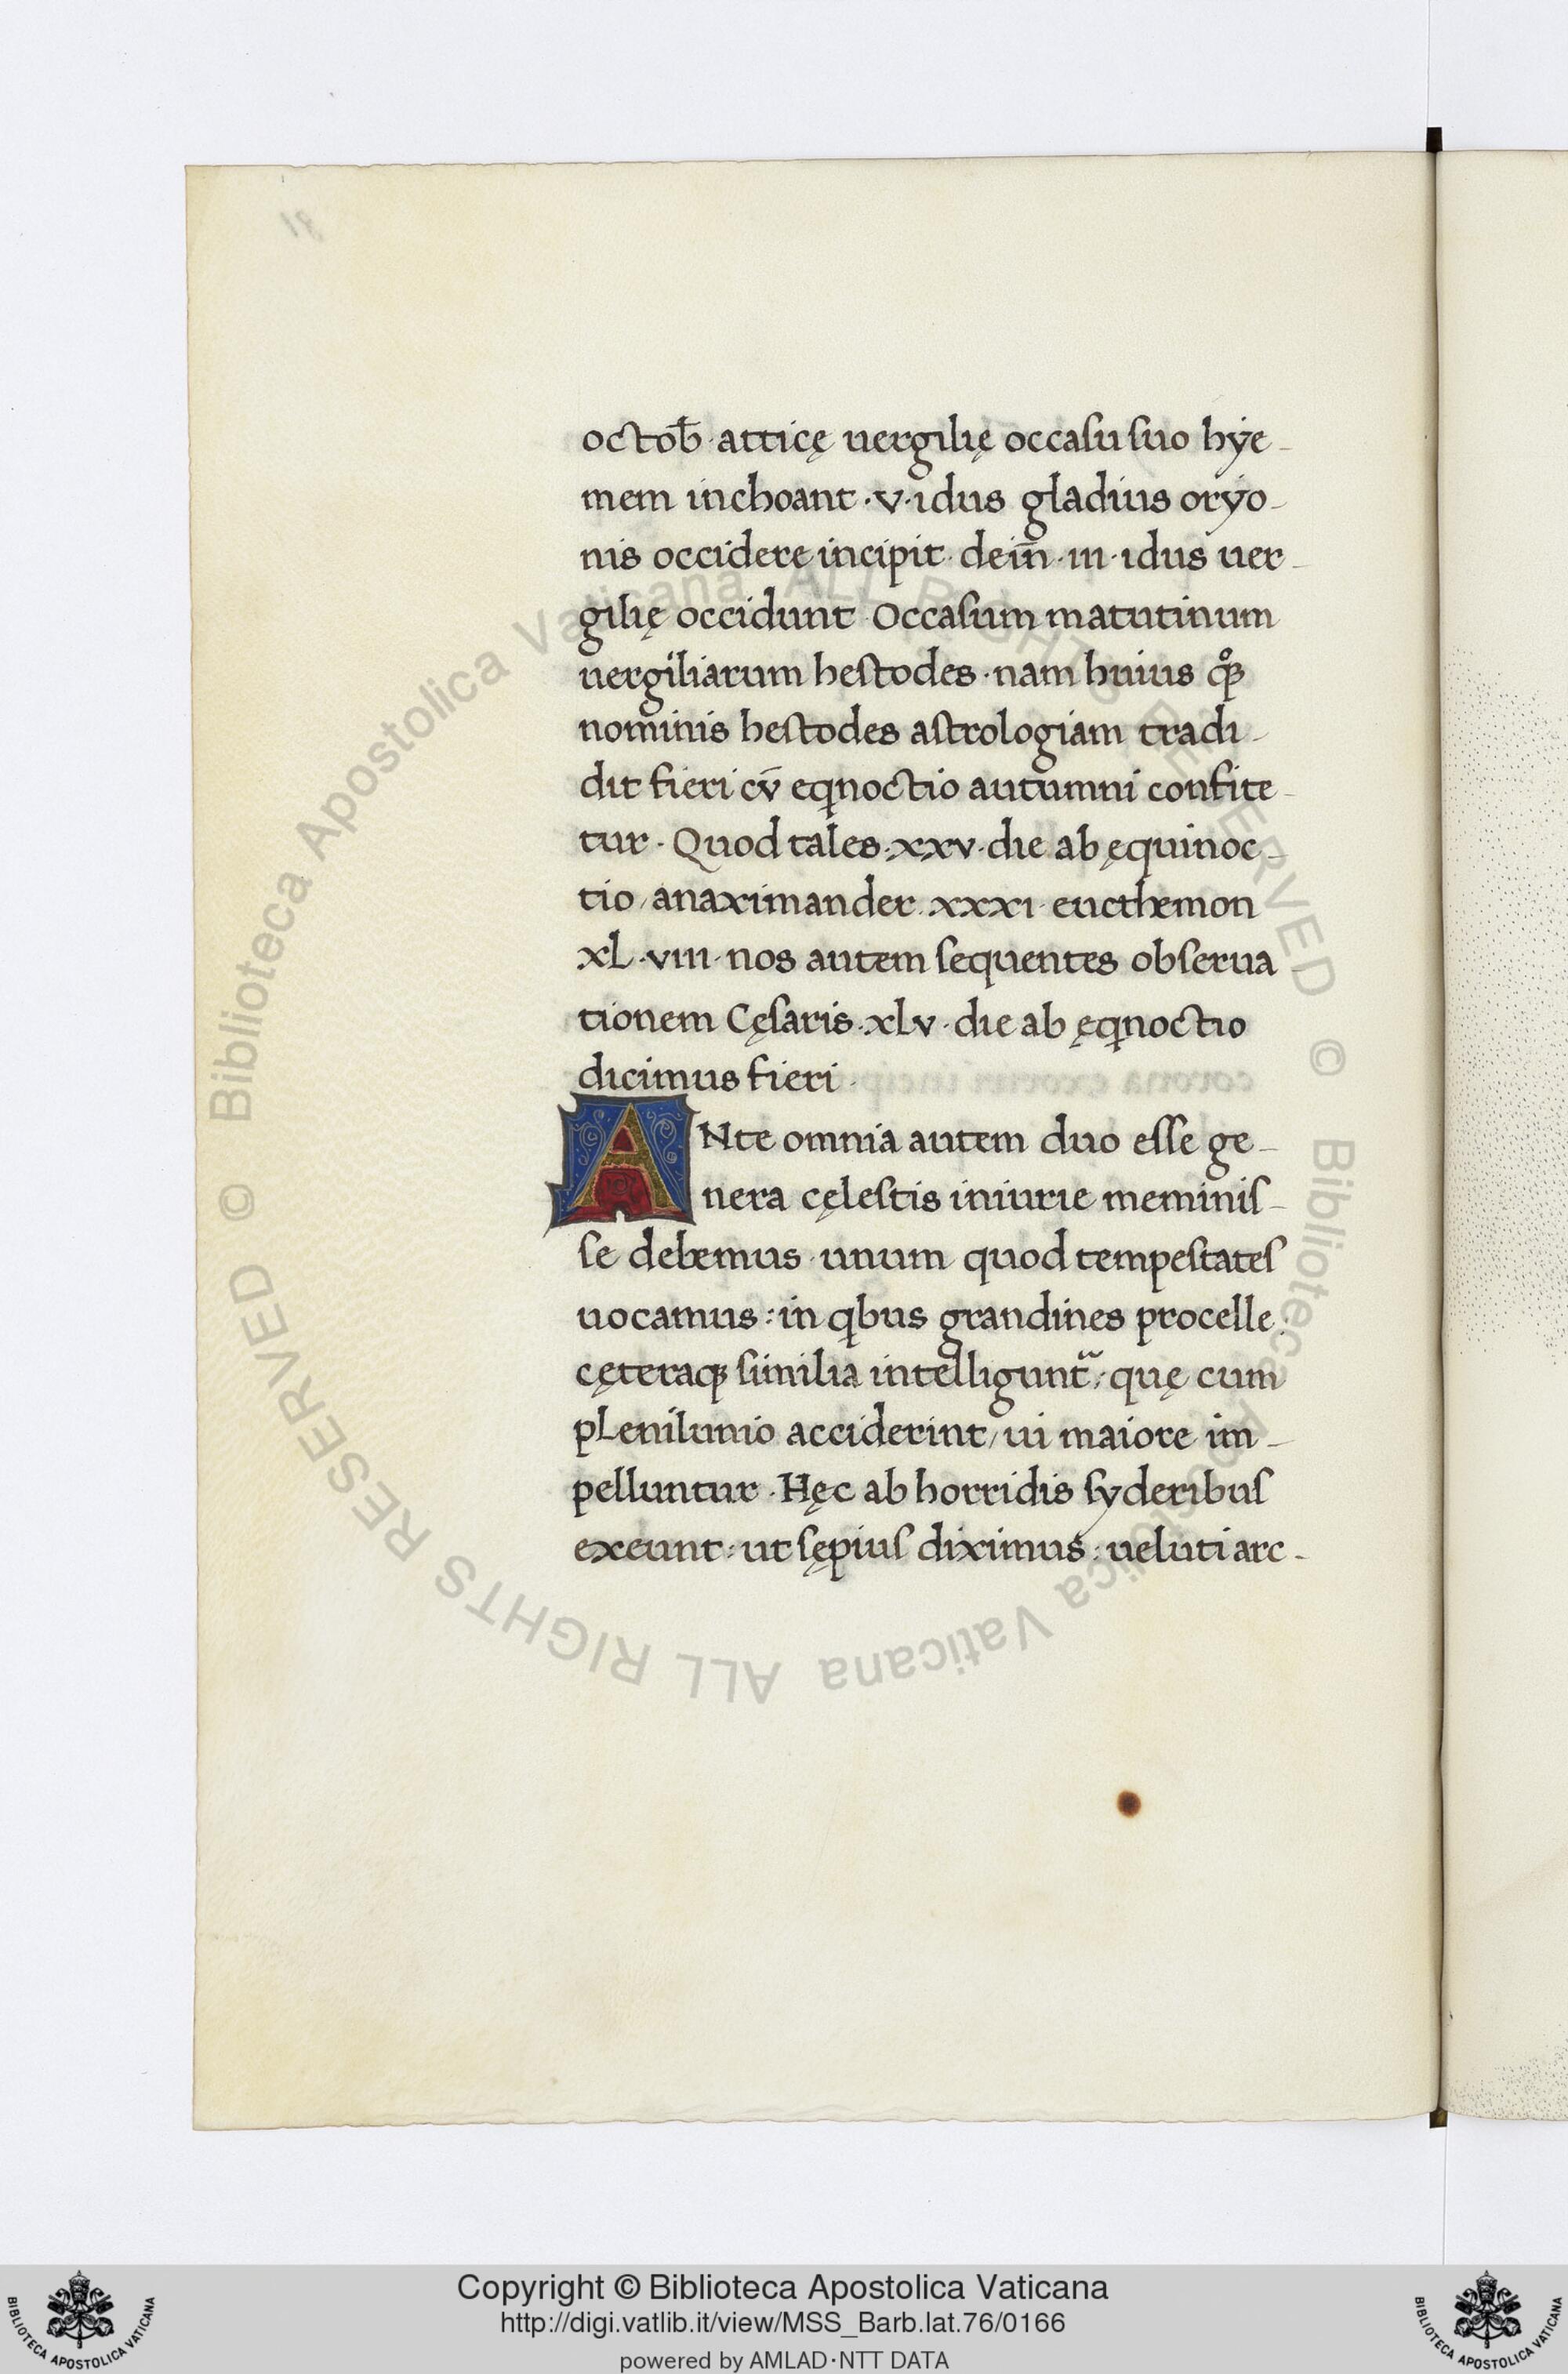 octob̄ · atticę uergilię occaſu ſuo hẏe-
mem inchoant · v · idus gladius orẏo-
nis occidere incipit · dein̄ · III · idus uer-
gilię occidunt · Occaſum matutinum
uergiliarum heſtodes · nam huius qͦꝫ
nominis heſtodes aſtrologiam tradi-
dit fieri cv̄ eqnoctio autumni confite-
tur · Quod tales · xxv · die ab ęquinoc-
tio / anaximander · xxxı · eucthemon
xL · vııı · nos autem ſequentes obſerua-
tionem Cęſaris · xlv · die ab ęqnoctio
dicimus fieri ·
ANte omnia autem duo eſſe ge-
nera cęleſtis iniurie meminiſ-
ſe debemus · unum quod tempeſtateſ
uocamus : in qbus grandines procelle
cęteraqꝫ ſimilia intelligunt᷑ : quę cum
pLenilunio acciderint / ui maiore im-
pelluntur · Hęc ab horridis ſyderibuſ
exeunt : ut ſępiuſ diximus : ueluti arc-
18
© Biblioteca Apostolica Vaticana ALL RIGHTS RESERVED © Biblioteca Apostolica Vaticana ALL RIGHTS RESERVED
Copyright © Biblioteca Apostolica Vaticana
http://digi.vatlib.it/view/MSS_Barb.lat.76/0166
powered by AMLAD·NTT DATA
BIBLIOTECA APOSTOLICA VATICANA
BIBLIOTECA APOSTOLICA VATICANA